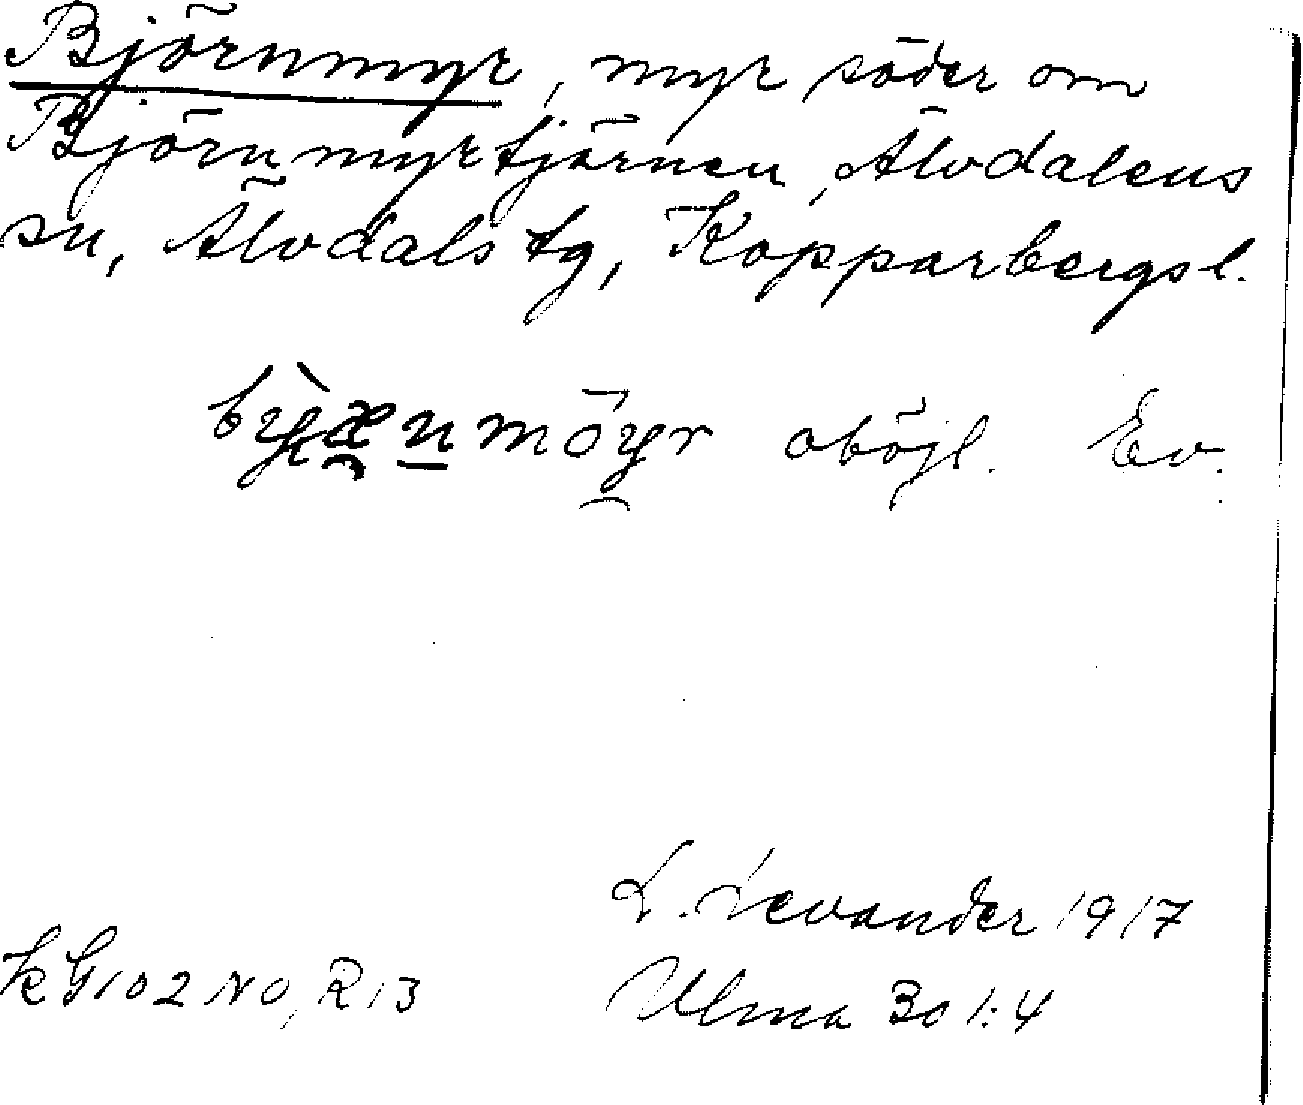 Björnmyr, myr söder om
Björnmyrtjärnen, Älvdalens
sn, Älvdals tg, Kopparbergs l.
oböjl. Ev.
L. Levander 1917
KG102 NO, R13 Ulma 301:4